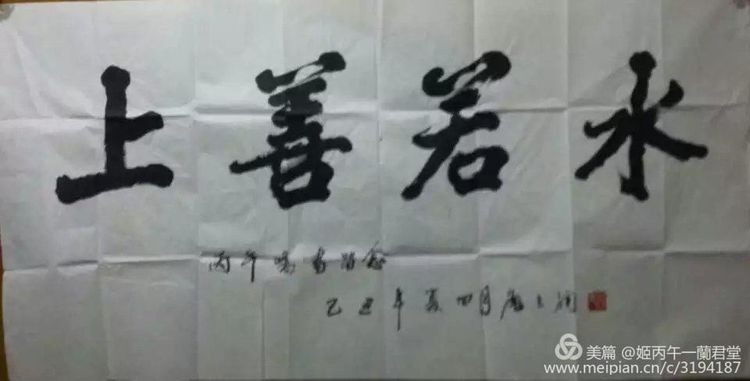 上善若水
丙午嘱书留念
己丑年夏四月
美篇 @姬丙午一蘭君堂
www.meipian.cn/c/3194187